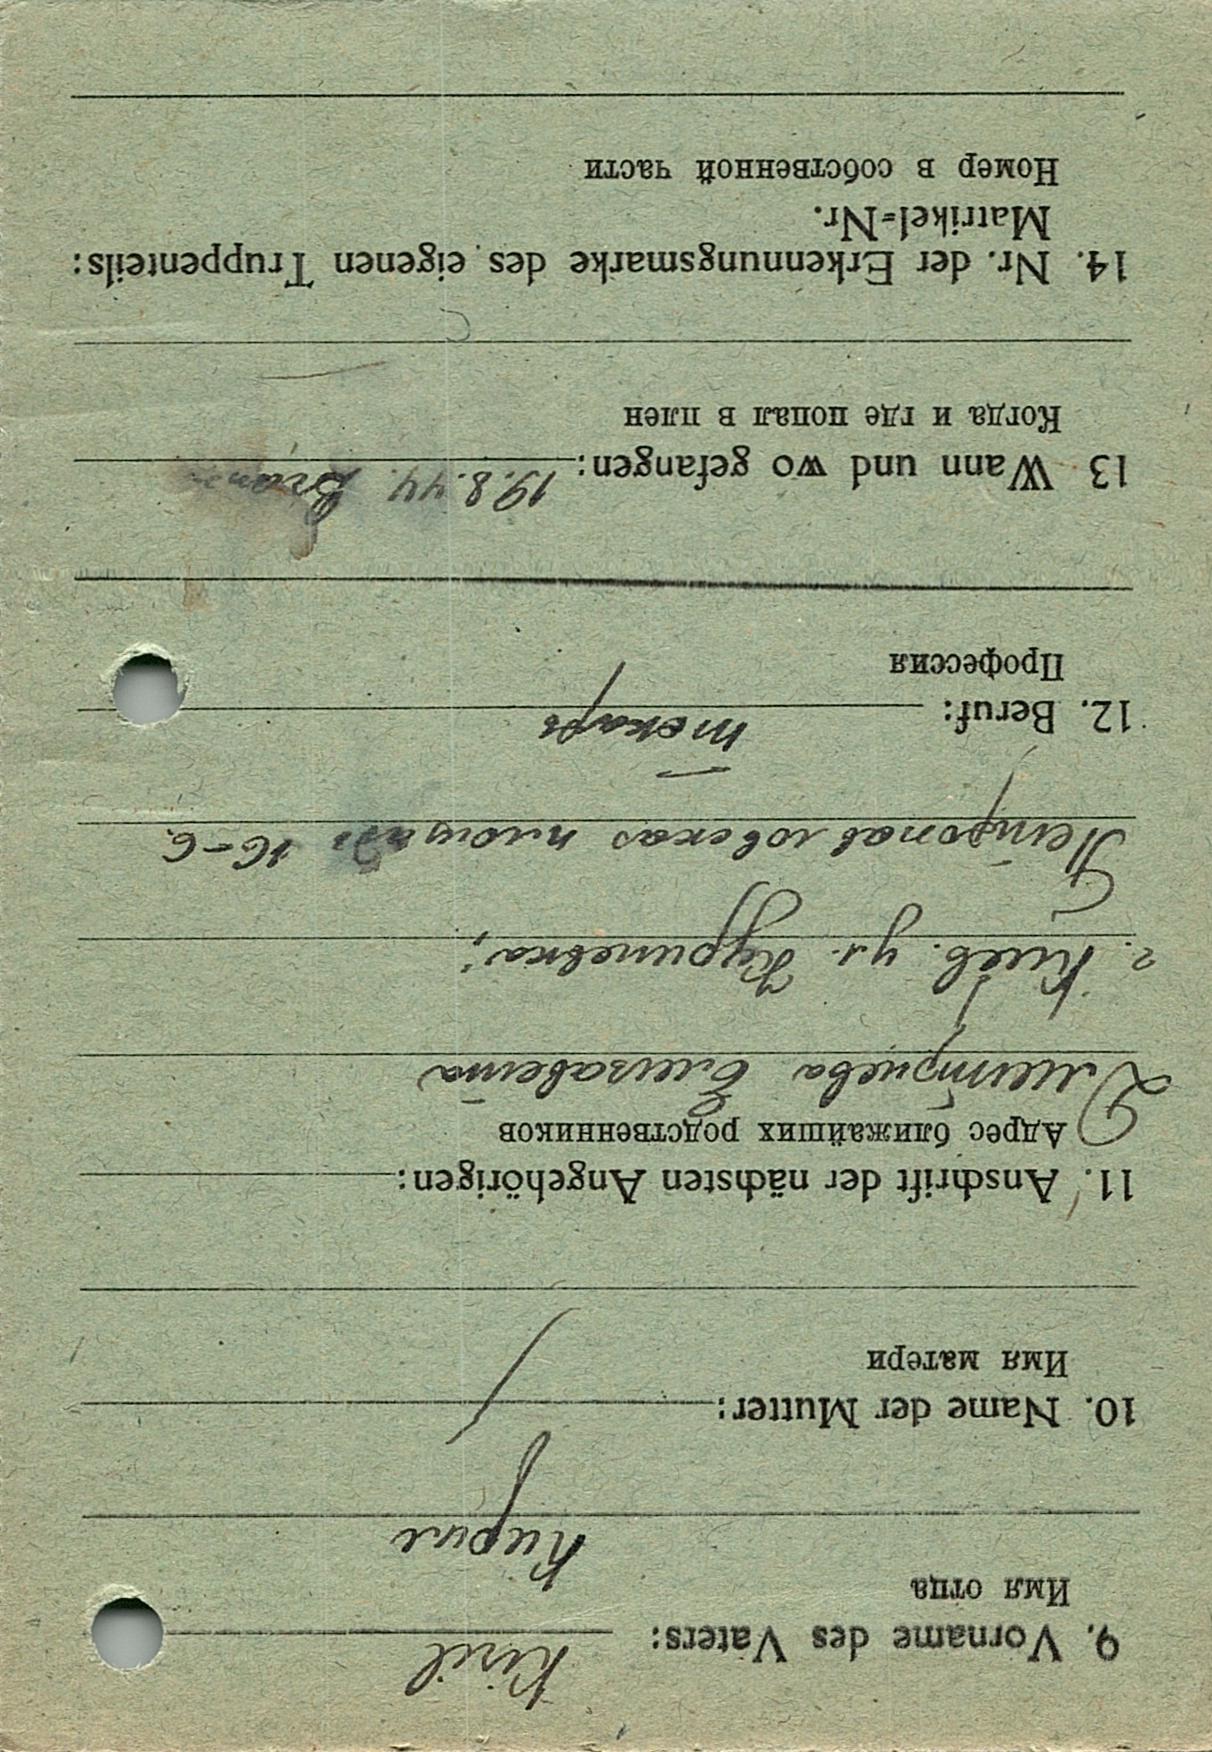 9. Vorname des Vaters: Kiril
Имя отца
Кирил
10. Name der Mutter:
Имя матери
11. Anschrift der nächsten Angehörigen:
Адрес ближайших родственников
Дмитриева Елизавета
г. Киев. ул.
Петропавловская площадь 16-6.
12. Beruf: токарь
Профессия
13 Wann und wo gefangen: 19.8.44.
Когда и где попал в плен
14. Nr. der Erkennungsmarke des eigenen Truppenteils:
Matrikel=Nr.
Номер в собственной части